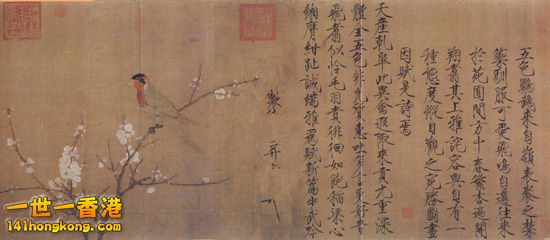 五色鸚鵡來自嶺表養之禁
籞馴服可愛飛鳴自適往來
於苑囿間方中春繁杏遍開
翔翥其上雅詫容與自有一
種態度縱目觀之宛勝圖畫
因賦是詩焉
天產乾皋此異禽遐陬來貢九重深
體全五色非凡質惠吐多言更好音
飛翥似憐毛羽貴徘徊如飽稻粱心
緗膺紺趾誠端雅為賦新篇步武吟
一世一香港
141hongkong.com